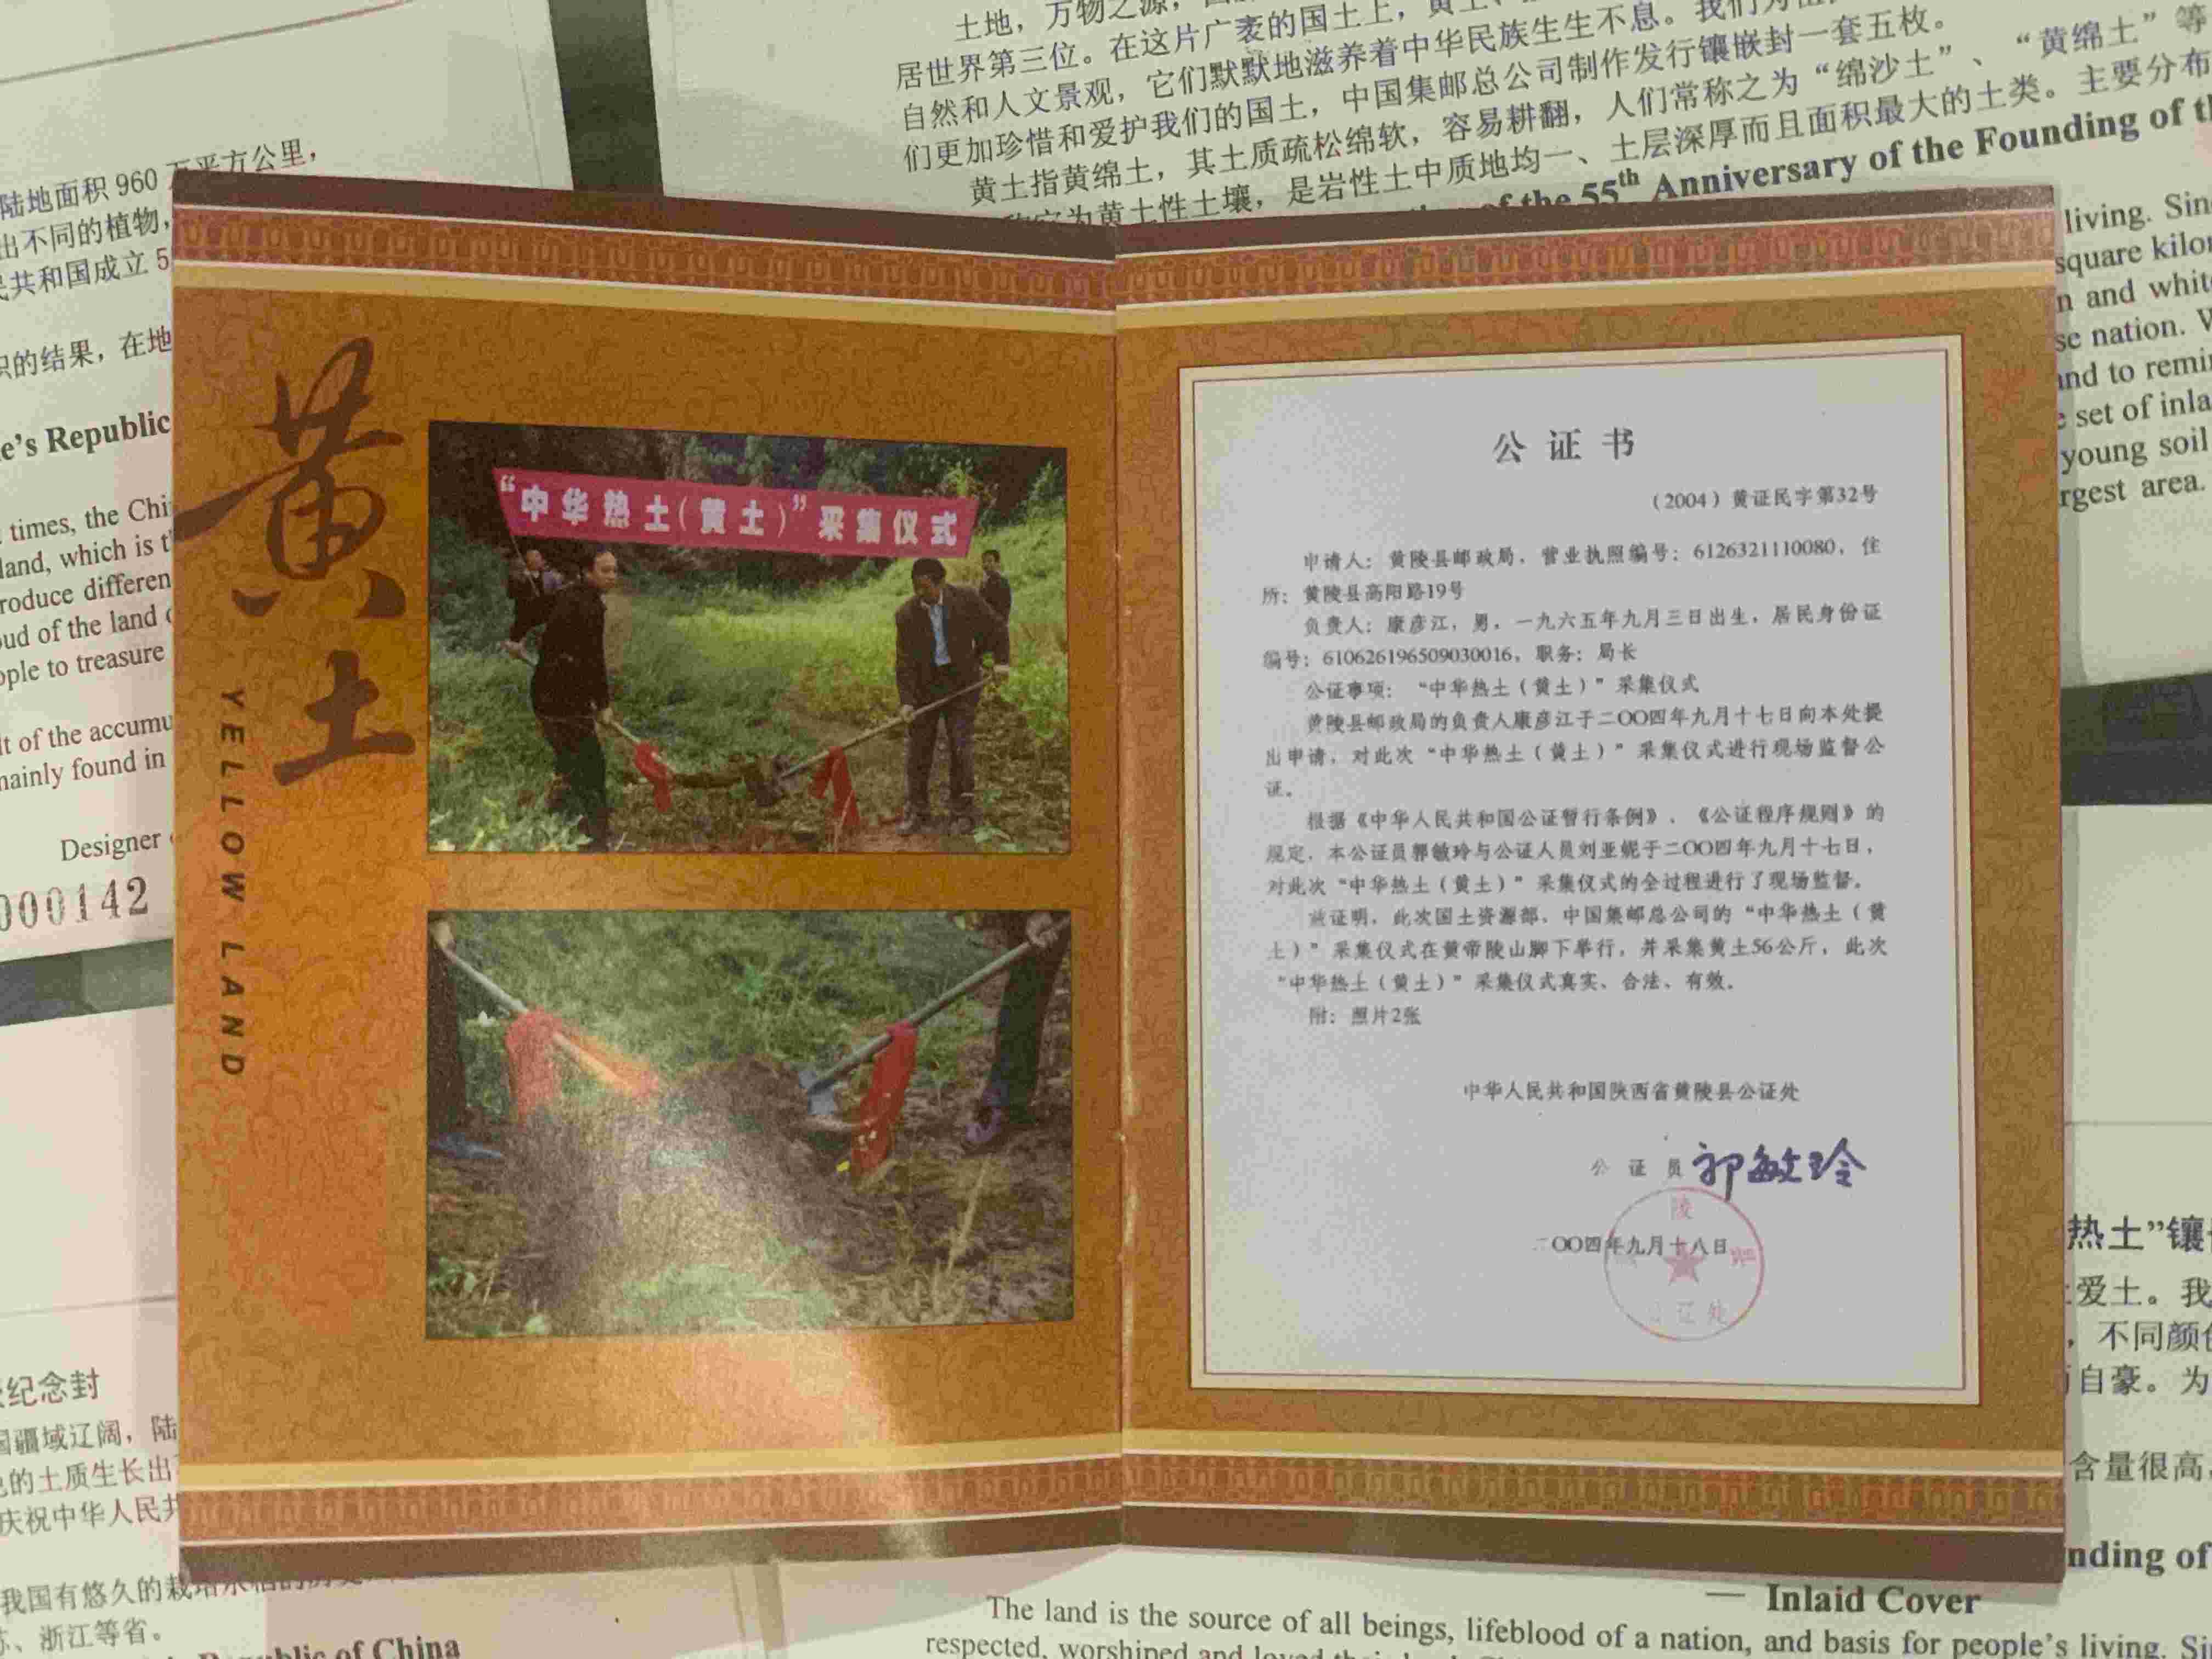 土地，万物之源，
居世界第三位。在这片广袤的国土上，黄土、
自然和人文景观，它们默默地滋养着中华民族生生不息。我们为
们更加珍惜和爱护我们的国土，中国集邮总公司制作发行镶嵌封一套五枚。
黄土指黄绵土，其土质疏松绵软，容易耕翻，人们常称之为“绵沙土”、“黄绵土”等
为黄土性土壤，是岩性土中质地均一、土层深厚而且面积最大的土类。主要分布
of the 55th Anniversary of the Founding of
陆地面积960万平方公里，
出不同的植物，
民共和国成立5
积的结果，在地
e's Republic
times, the Chi
land, which is
roduce differen
oud of the land
ople to treasure
lt of the accumu
mainly found in
Designer
000142
living. Sin
square kilo
n and white
se nation. W
and to remi
set of inla
young soil
rgest area.
黄土
YELLOW LAND
“中华热土（黄土）”采集仪式
公证书
（2004）黄证民字第32号
申请人：黄陵县邮政局，营业执照编号：6126321110080，住
所：黄陵县高阳路19号
负责人：康彦江，男，一九六五年九月三日出生，居民身份证
编号：610626196509030016，职务：局长
公证事项：“中华热土（黄土）”采集仪式
黄陵县邮政局的负责人康彦江于二〇〇四年九月十七日向本处提
出申请，对此次“中华热土（黄土）”采集仪式进行现场监督公
证。
根据《中华人民共和国公证暂行条例》、《公证程序规则》的
规定，本公证员郭敏玲与公证人员刘亚妮于二〇〇四年九月十七日，
对此次“中华热土（黄土）”采集仪式的全过程进行了现场监督。
兹证明，此次国土资源部、中国集邮总公司的“中华热土（黄
土）”采集仪式在黄帝陵山脚下举行，并采集黄土56公斤，此次
“中华热土（黄土）”采集仪式真实、合法、有效。
附：照片2张
中华人民共和国陕西省黄陵县公证处
公证员 郭敏玲
二〇〇四年九月十八日
纪念封
国疆域辽阔，陆
色的土质生长出
庆祝中华人民共
我国有悠久的栽培水稻的历史
苏、浙江等省。
Republic of China
热土”镶
爱土。我
，不同颜色
自豪。为
含量很高，
nding of
— Inlaid Cover
The land is the source of all beings, lifeblood of a nation, and basis for people's living. Si
respected, worshiped and loved